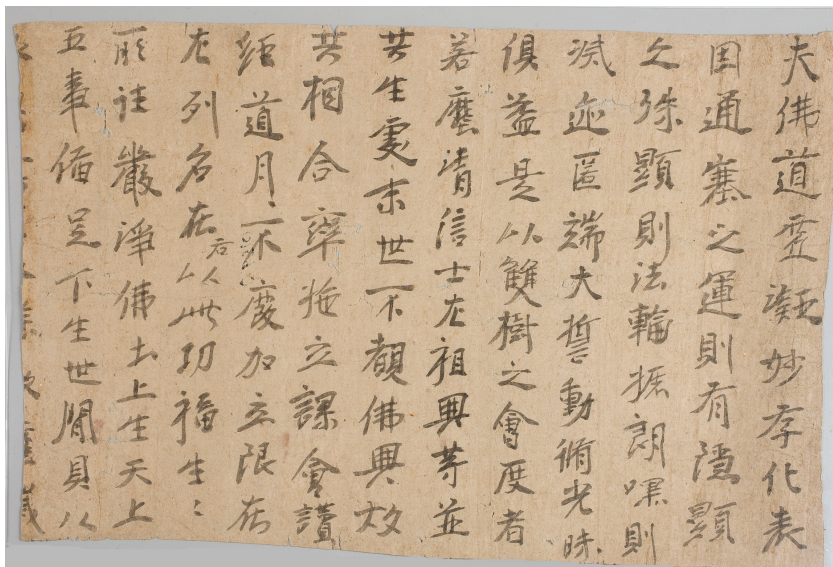 夫佛道虛凝妙存化表
因通塞之運則有隱顯
之殊顯則法輪振朗嘿則
滅迹匿端大誓動脩光昧
俱益是以雙樹之會度者
若塵清信士左祖興等並
共生處末世不覩佛興故
共相合率施立課會讀
經道月二不廢加立限在
左列名在右以此功福生〻
所詿嚴淨佛土上生天上
五事備足下生世閒具以